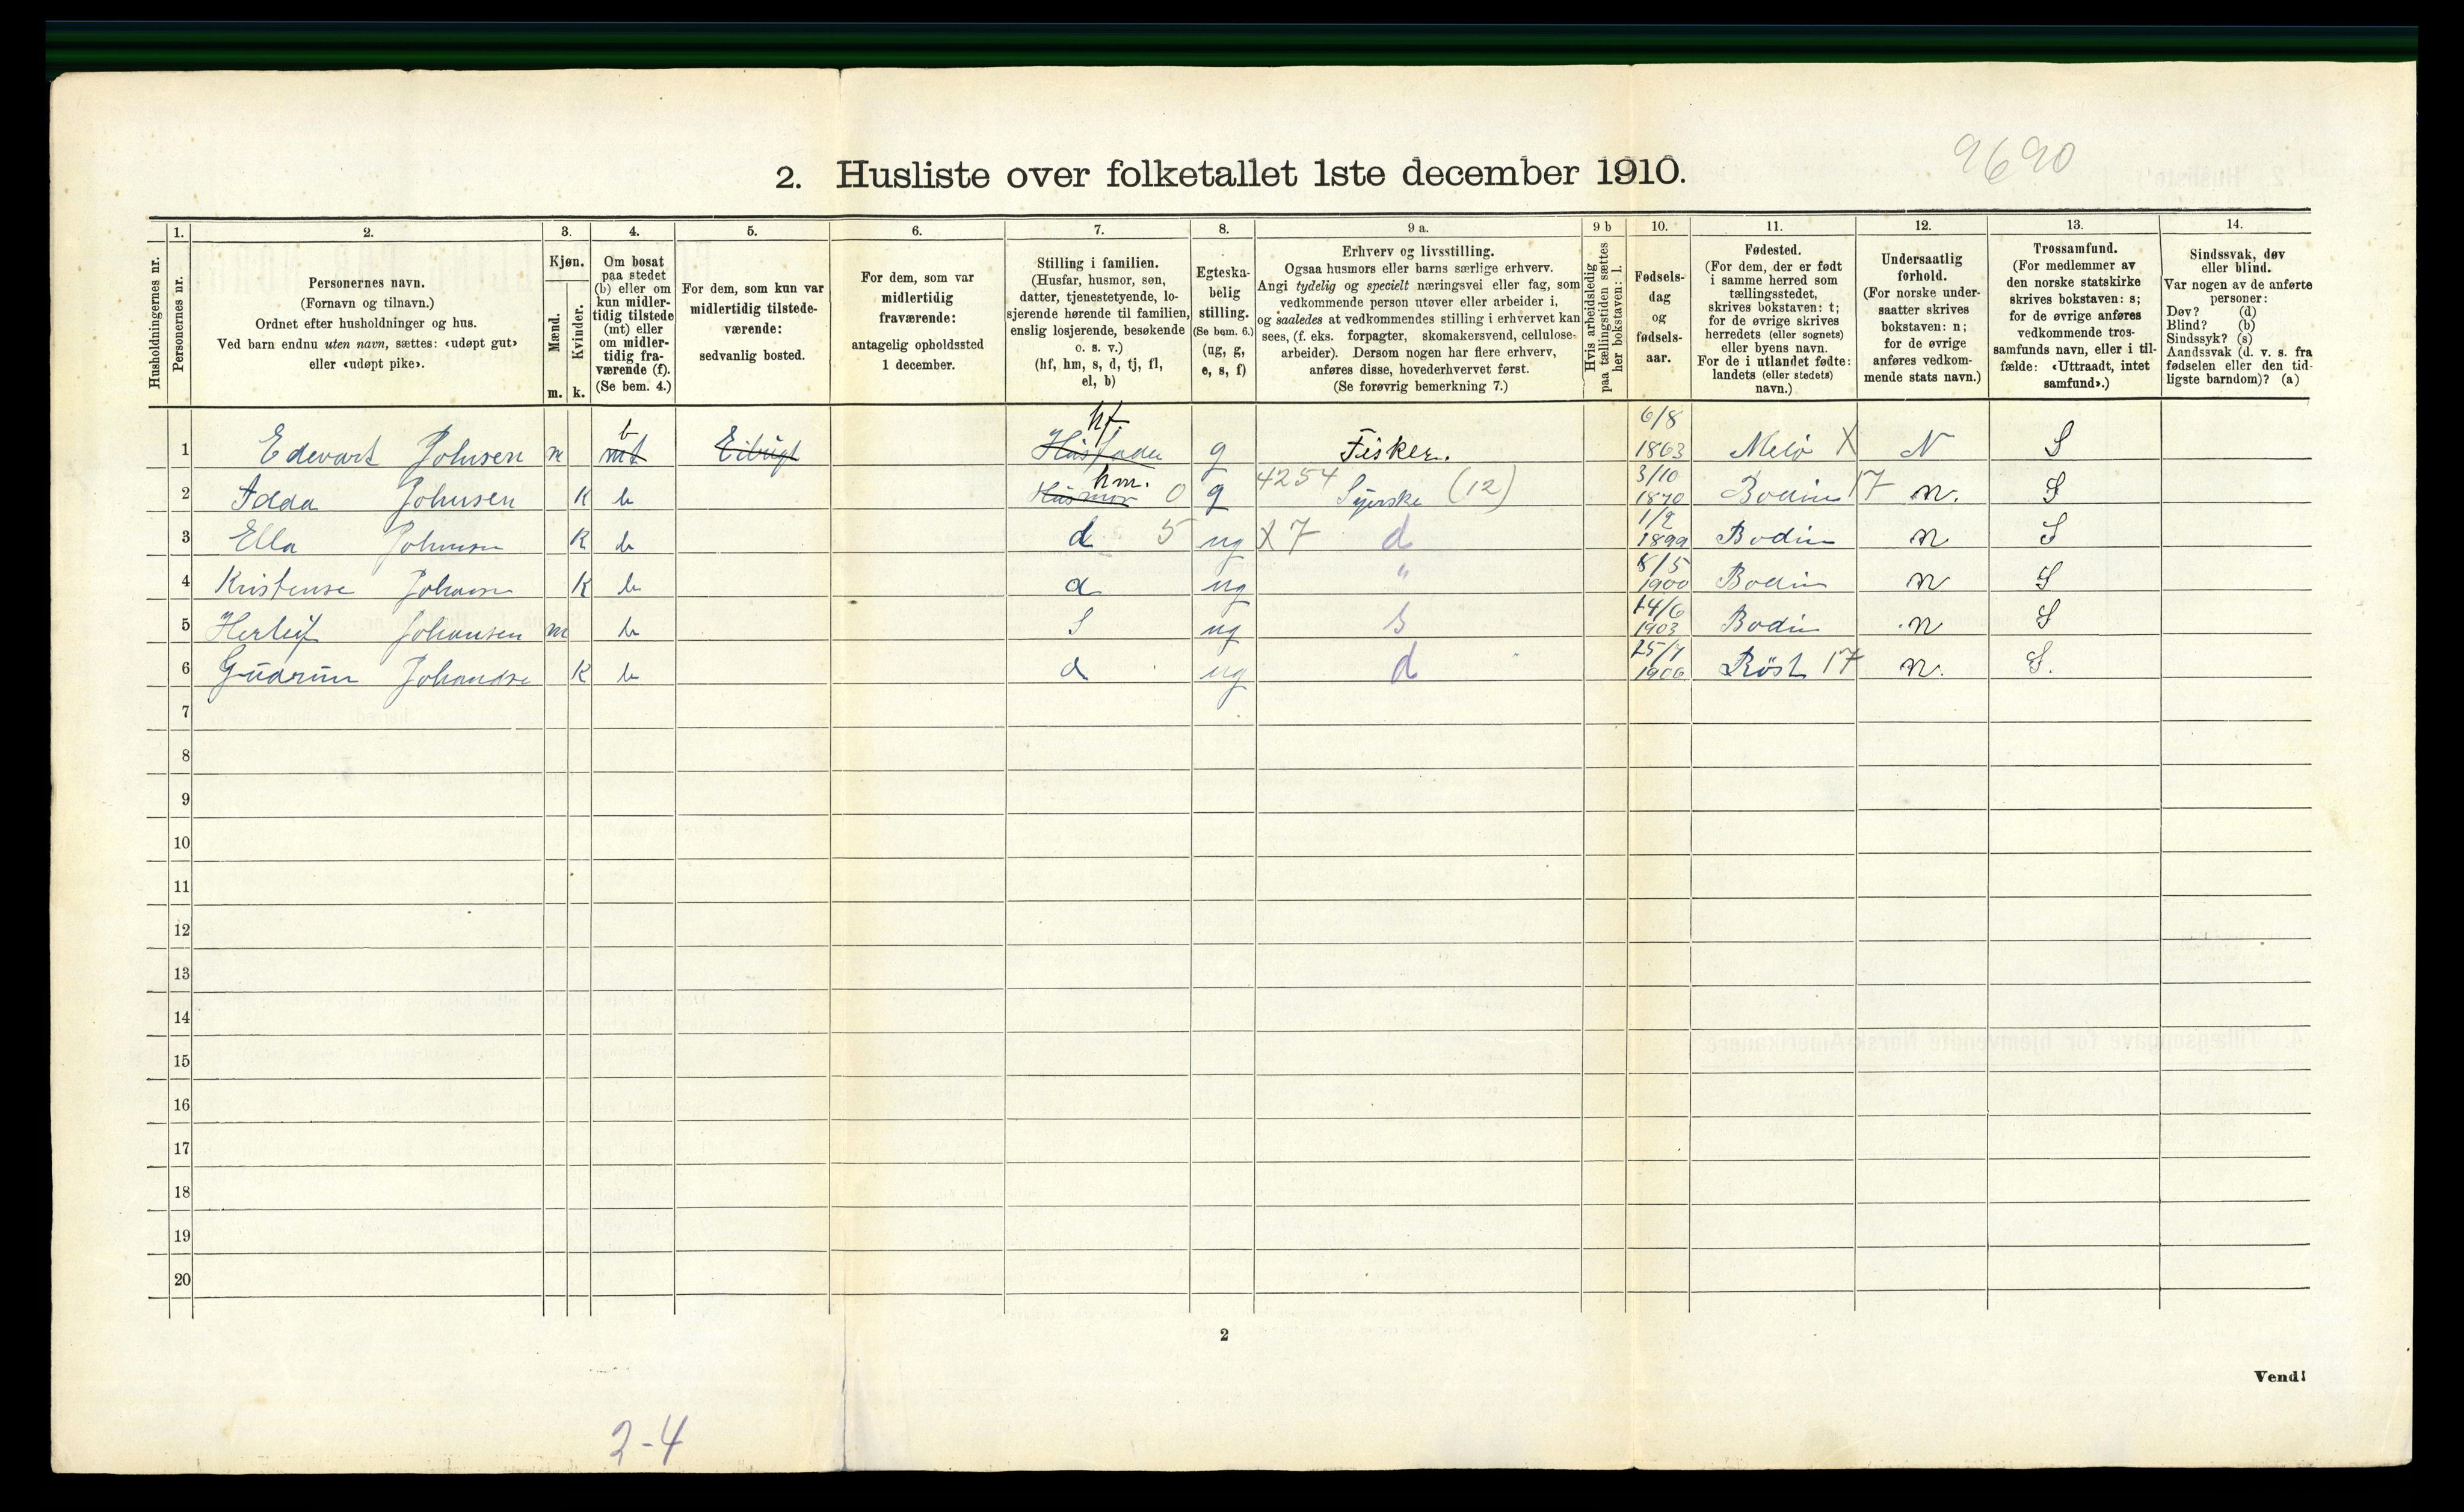 9690
2. Husliste over folketallet 1ste december 1910.
Husholdningernes nr.
1. Personernes nr.
2. Personernes navn. (Fornavn og tilnavn.) Ordnet efter husholdninger og hus. Ved barn endnu uten navn, sættes: «udøpt gut» eller «udøpt pike».
3. Kjøn. Mænd. m. Kvinder. k.
4. Om bosat paa stedet (b) eller om kun midlertidig tilstede (mt) eller om midlertidig fraværende (f). (Se bem. 4.)
5. For dem, som kun var midlertidig tilstedeværende: sedvanlig bosted.
6. For dem, som var midlertidig fraværende: antagelig opholdssted 1 december.
7. Stilling i familien. (Husfar, husmor, søn, datter, tjenestetyende, losjerende hørende til familien, enslig losjerende, besøkende o. s. v.) (hf, hm, s, d, tj, fl, el, b)
8. Egteskabelig stilling. (Se bem. 6.) (ug, g, e, s, f)
9 a. Erhverv og livsstilling. Ogsaa husmors eller barns særlige erhverv. Angi tydelig og specielt næringsvei eller fag, som vedkommende person utøver eller arbeider i, og saaledes at vedkommendes stilling i erhvervet kan sees, (f. eks. forpagter, skomakersvend, cellulosearbeider). Dersom nogen har flere erhverv, anføres disse, hovederhvervet først. (Se forøvrig bemerkning 7.)
9 b Hvis arbeidsledig paa tællingstiden sættes her bokstaven: l.
10. Fødselsdag og fødselsaar.
11. Fødested. (For dem, der er født i samme herred som tællingsstedet, skrives bokstaven: t; for de øvrige skrives herredets (eller sognets) eller byens navn. For de i utlandet fødte: landets (eller stedets) navn.)
12. Undersaatlig forhold. (For norske undersaatter skrives bokstaven: n; for de øvrige anføres vedkommende stats navn.)
13. Trossamfund. (For medlemmer av den norske statskirke skrives bokstaven: s; for de øvrige anføres vedkommende trossamfunds navn, eller i tilfælde: «Uttraadt, intet samfund».)
14. Sindssvak, døv eller blind. Var nogen av de anførte personer: Døv? (d) Blind? (b) Sindssyk? (s) Aandssvak (d. v. s. fra fødselen eller den tidligste barndom)? (a)
1 Edevart Johnsen m mt b Husfader hf. g Fisker. 6/8 1863 Melö X N S
2 Adda Johnsen K b Husmor hm. 0 g 4254 Syerske (12) 3/10 1870 Bodin 17 n. S
3 Ella Johnsen K b d 5 ug X 7 d 1/2 1899 Bodin n S
4 Kristense Johansn K b d ug " 8/5 1900 Bodin n S
5 Herleif Johansen m b S ug S 14/6 1903 Bodin n S
6 Gudrun Johandse K b d ug d 25/7 1906 Röst 17 n. S.
7
8
9
10
11
12
13
14
15
16
17
18
19
20
2
Vend!
2-4